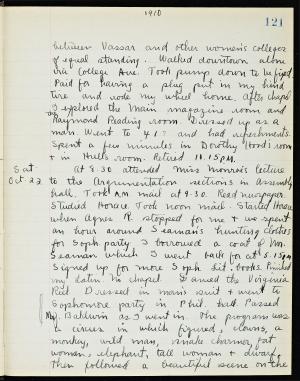 1910
121
between Vassar and other women's colleges
of equal standing. Walked downtown alone
via College Ave. Took pump down to be fixed
Paid for having a plug put in my hind
tire and rode my wheel home. After chapel
I explored the Main magazine room and
Raymond Reading room. Dressed up as a
man. Went to 417 and had refreshments.
Spent a few minutes in Dorothy Hood's room
+ in Hull's room. Retired 11.15 P.M.
Sat At 8.30 attended Miss Monroe's lecture
Oct. 22 to the Argumentation sections in assembly
hall. Took A.M. mail at 9.30. Read newspaper.
Studied Horace. Took noon mail. Started Horace
when Agnes R. stopped for me + we spent
an hour around Seaman's hunting clothes
for Soph party. I borrowed a coat of Mr.
Seaman which I went back for at 5.15 PM
Signed up for more Soph. Lit. books. Finished
my Latin in chapel. Danced the Virginia
Reel. Dressed in man's suit + went to
Sophomore party in Phil. hall. Passed
Baldwin as I went in. The program was
a circus in which figured, clowns, a
monkey, wild man, snake charmer, fat
woman, elephant, tall woman + dwarf.
Then followed a beautiful scene on the